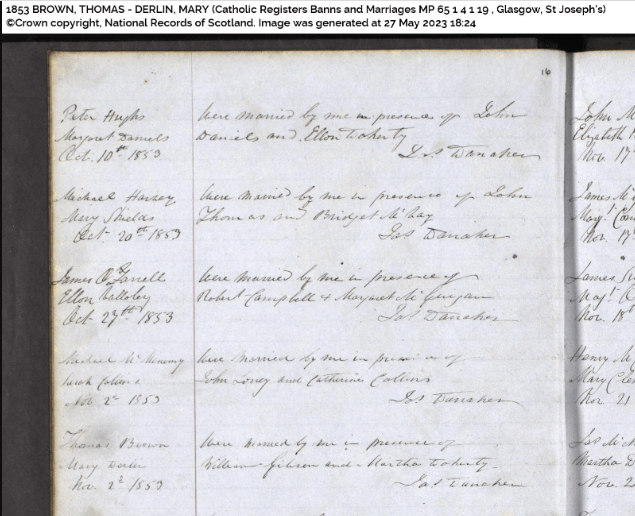 1853 BROWN, THOMAS - DERLIN, MARY (Catholic Registers Banns and Marriages MP 65 1 4 1 19 , Glasgow, St Joseph's)
©Crown copyright, National Records of Scotland. Image was generated at 27 May 2023 18:24
16
Peter Hughs
Margret Daniels
Oct. 10th 1853
Were married by me in presence of John
Daniels and Ellen Doherty
Jas Danaher
Michael
Mary Shields
Oct 20th 1853
Were married by me in presence of John
Thomas and Bridget McKay
Jas Danaher
James O'Farrell
Ellen
Oct 27th 1853
Were married by me in presence of
Robert Campbell & Margaret
Jas Danaher
Michael
Sarah Collins
Nov. 2d 1853
Were married by me in presence of
John Loney and Catherine Collins
Jas Danaher
Thomas Brown
Mary
Nov. 2d 1853
Were married by me in presence of
William Gibson and Martha Doherty.
Jas Danaher
John M
Elizabeth
Nov. 17
James M
Margt
Nov. 17
James
Nov. 18
Henry M
Mary
Nov 21
Jas
Martha D
Nov. 2